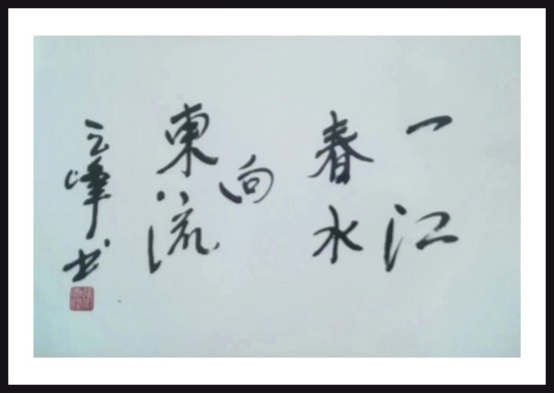 一江
春水
向
東流
云峰书